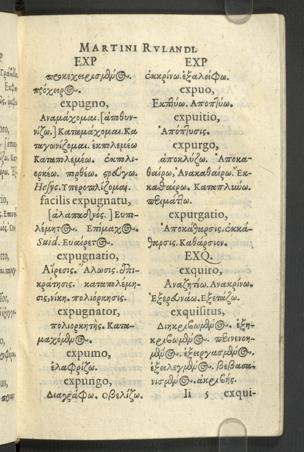 MARTINI RVLANDI.
EXP
προκεχειρισμένος.
πρόχειρος.
expugno,
Αναμάχομαι. [ἀπιθυν-
νίζω.] Καταμάχομαι. Κα
ταγωνίζομαι. ἐκπολεμέω
Καταπολεμέω. ἐκπολι-
ορκέω. πορθέω.
Hesyc. Υπεροπλίζομαι.
facilis expugnatu,
Επίμαχος.
Suid. Ευαίρετος.
expugnatio,
Αἵρεσις. Ἅλωσις. ἐπι-
κράτησις. καταπολέμη-
σις, νίκη. πολιόρκησις.
expugnator,
πολιορκητής. Κατα-
μαχόμενος.
expumo,
ἐξαφρίζω.
expungo,
Διαγράφω. Οβελίζω.
EXP
ἐκκρίνω. ἐξαλείφω.
expuo,
Εκπτύω. Αποπτύω.
expuitio,
Απόπτυσις.
expurgo,
ἀποκλύζω. Αποκα-
θαίρω, Ανακαθαίρω. Εκ-
καθαίρω. Καταπλύνω.
expurgatio,
Αποκάθαρσις. ἐκκά-
θαρσις. Καθάρσιον.
EXQ
exquiro,
Αναζητέω. Ανακρίνω.
Εξερευνάω. Εξετάζω.
exquisitus,
Διηκριβωμένος. ἐξη-
κριβωμένος.
μένος. ἐξειργασμένος.
ἐξειλεγμένος. βεβασα-
νισμένος. ἀκριβής.
Ii 5 exqui-